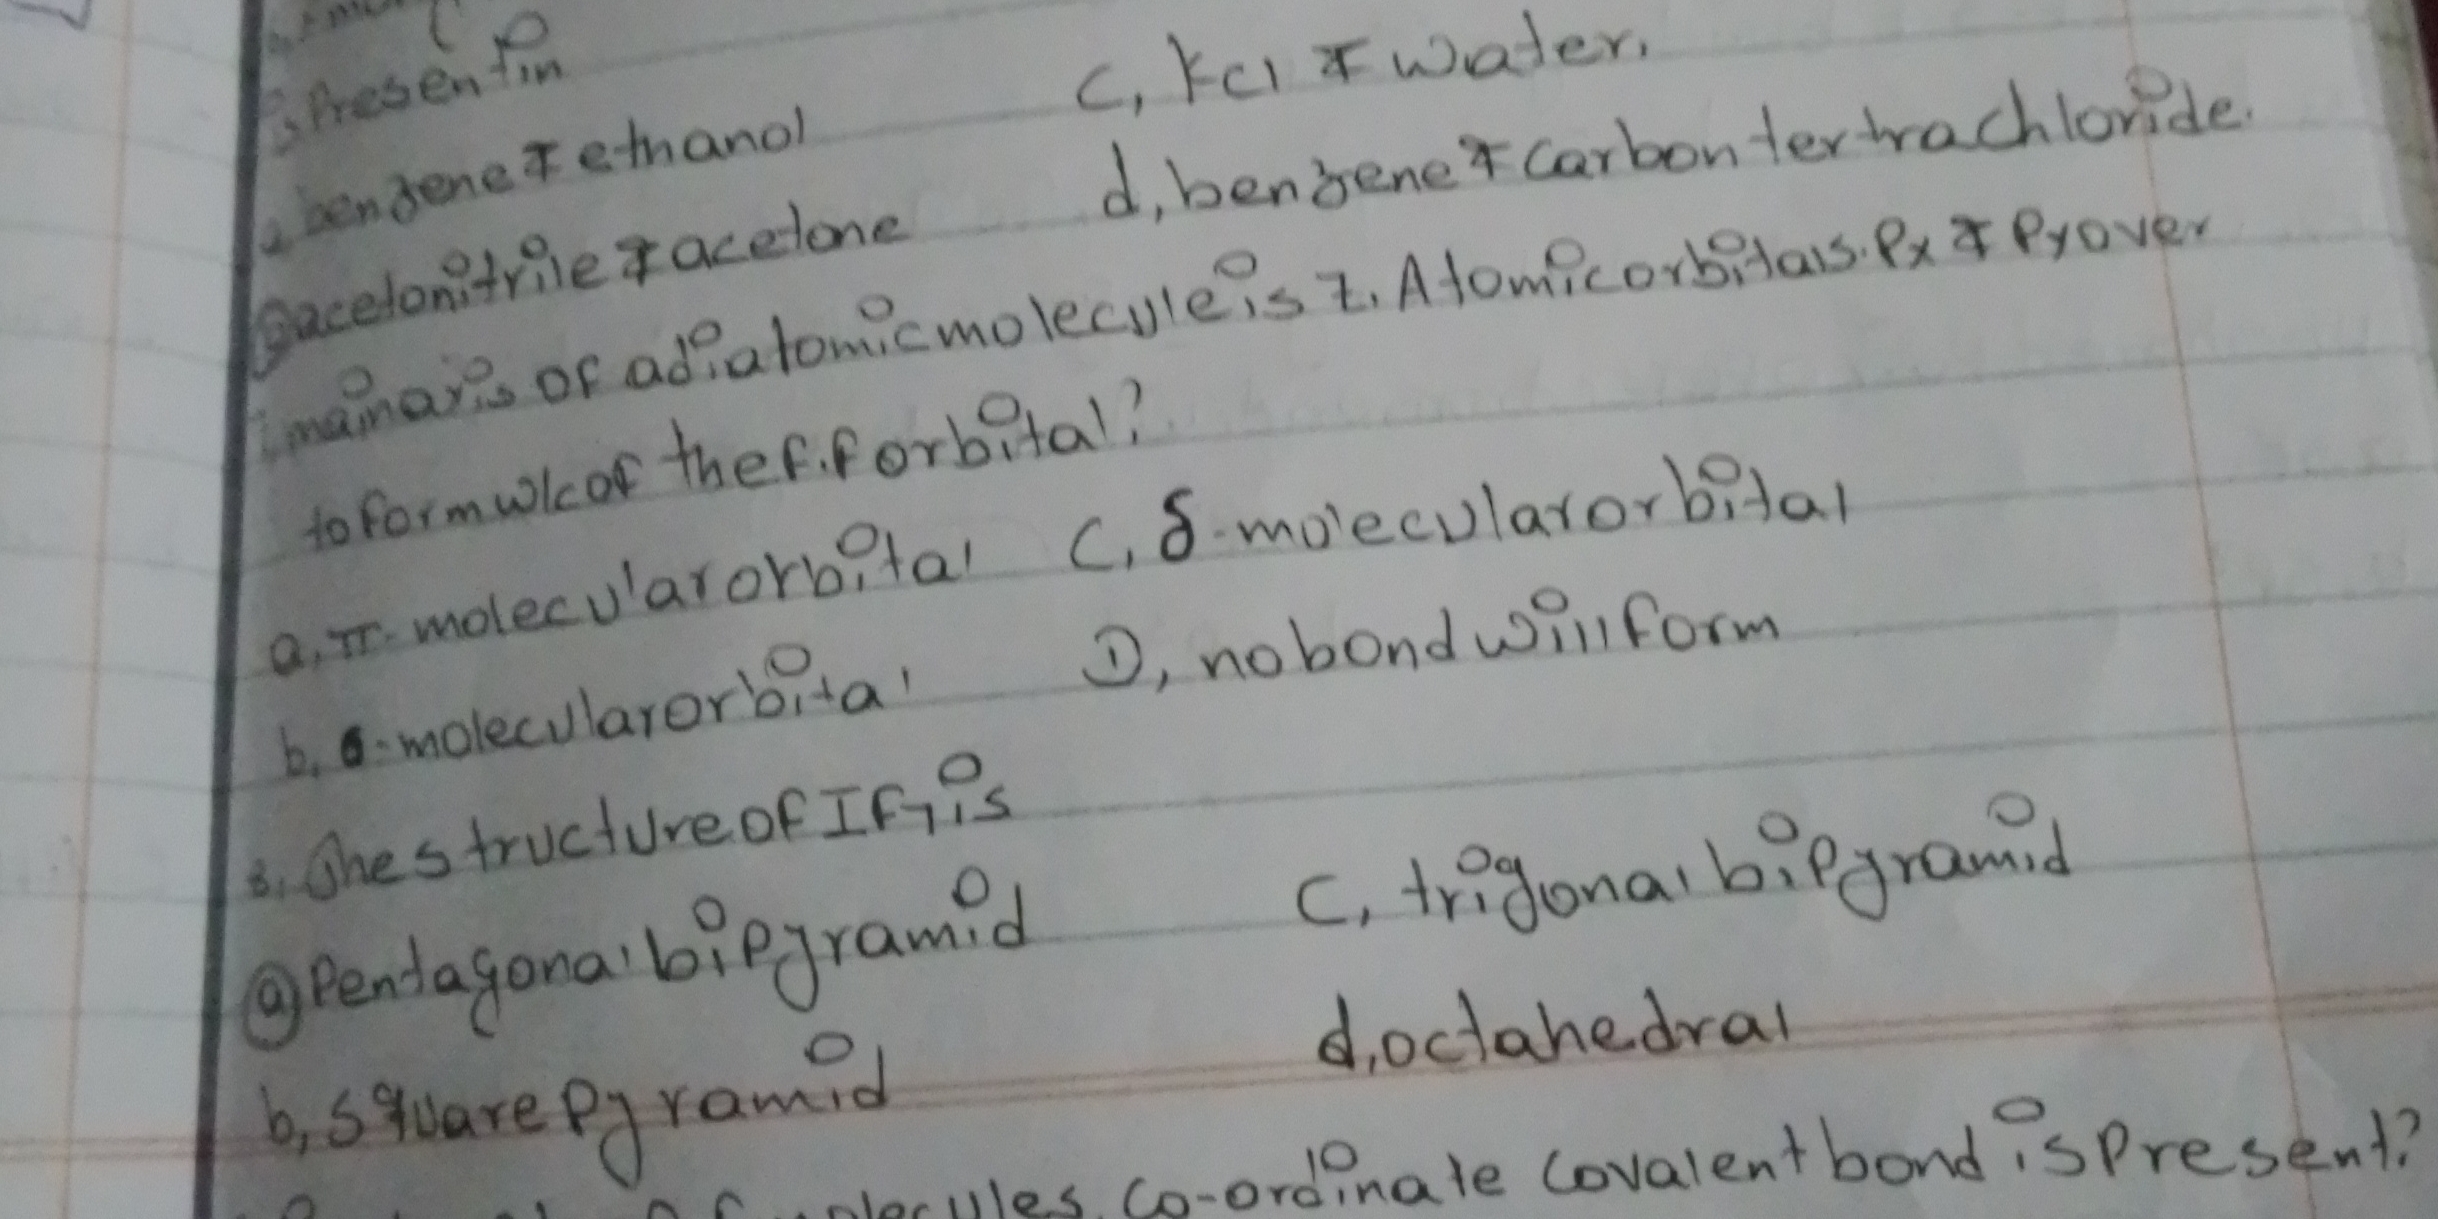 Present in
benzene & ethanol
C, Kcl & water.
acetonitrile & acetone
d, benzene & carbon tertrachloride.
main axis of a diatomic molecule is z. Atomic orbitals. Px & Py over
to form w/c of the f.f orbital?
a, π-molecular orbital
C, δ-molecular orbital
b, σ-molecular orbital
D, no bond will form
3. The structure of IF7 is
a) Pentagonal bipyramid
C, trigonal bipyramid
b, square pyramid
d, octahedral
molecules, co-ordinate covalent bond is present?